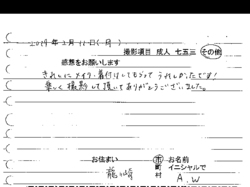 2019年2月11日(月)
撮影項目 成人 七五三 その他
感想をお願いします
きれいにメイク・着付けしてもらってうれしかったです!
楽しく撮影して頂いてありがとうございました。
お住まい 市 お名前
龍ヶ崎 町 イニシャルで
村 A.W